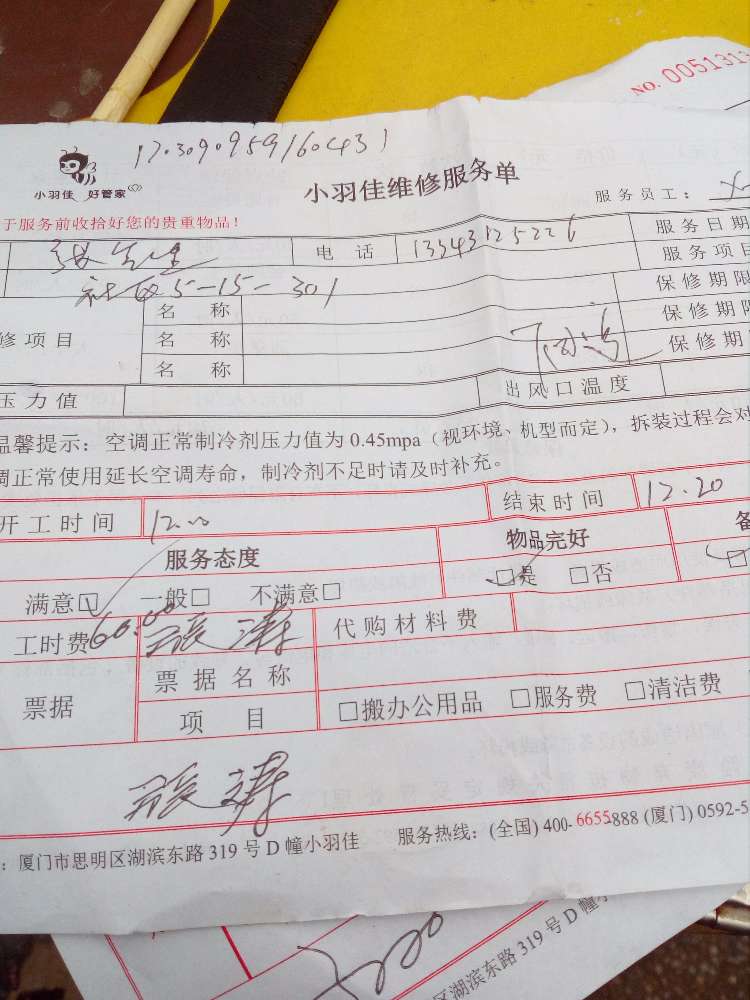 NO. 0051313
170309095916​0431
小羽佳 好管家
小羽佳维修服务单
服务员工：
于服务前收拾好您的贵重物品！
张先生 电 话 13543125226 服务日期
5-15-301 服务项目
修项目 名 称 保修期限
名 称 保修期限
名 称 保修期
压力值 出风口温度
温馨提示：空调正常制冷剂压力值为 0.45mpa（视环境、机型而定），拆装过程会对
调正常使用延长空调寿命，制冷剂不足时请及时补充。
开工时间 12.00 结束时间 12.20
服务态度 物品完好 备
满意☑ 一般□ 不满意□ ☑是 □否 □
工时费 60.00 张涛 代购材料费
票据 票据名称
项 目 □搬办公用品 □服务费 □清洁费
张涛
：厦门市思明区湖滨东路 319 号 D 幢小羽佳 服务热线：(全国) 400-6655888 (厦门) 0592-5
区湖滨东路 319 号 D 幢小